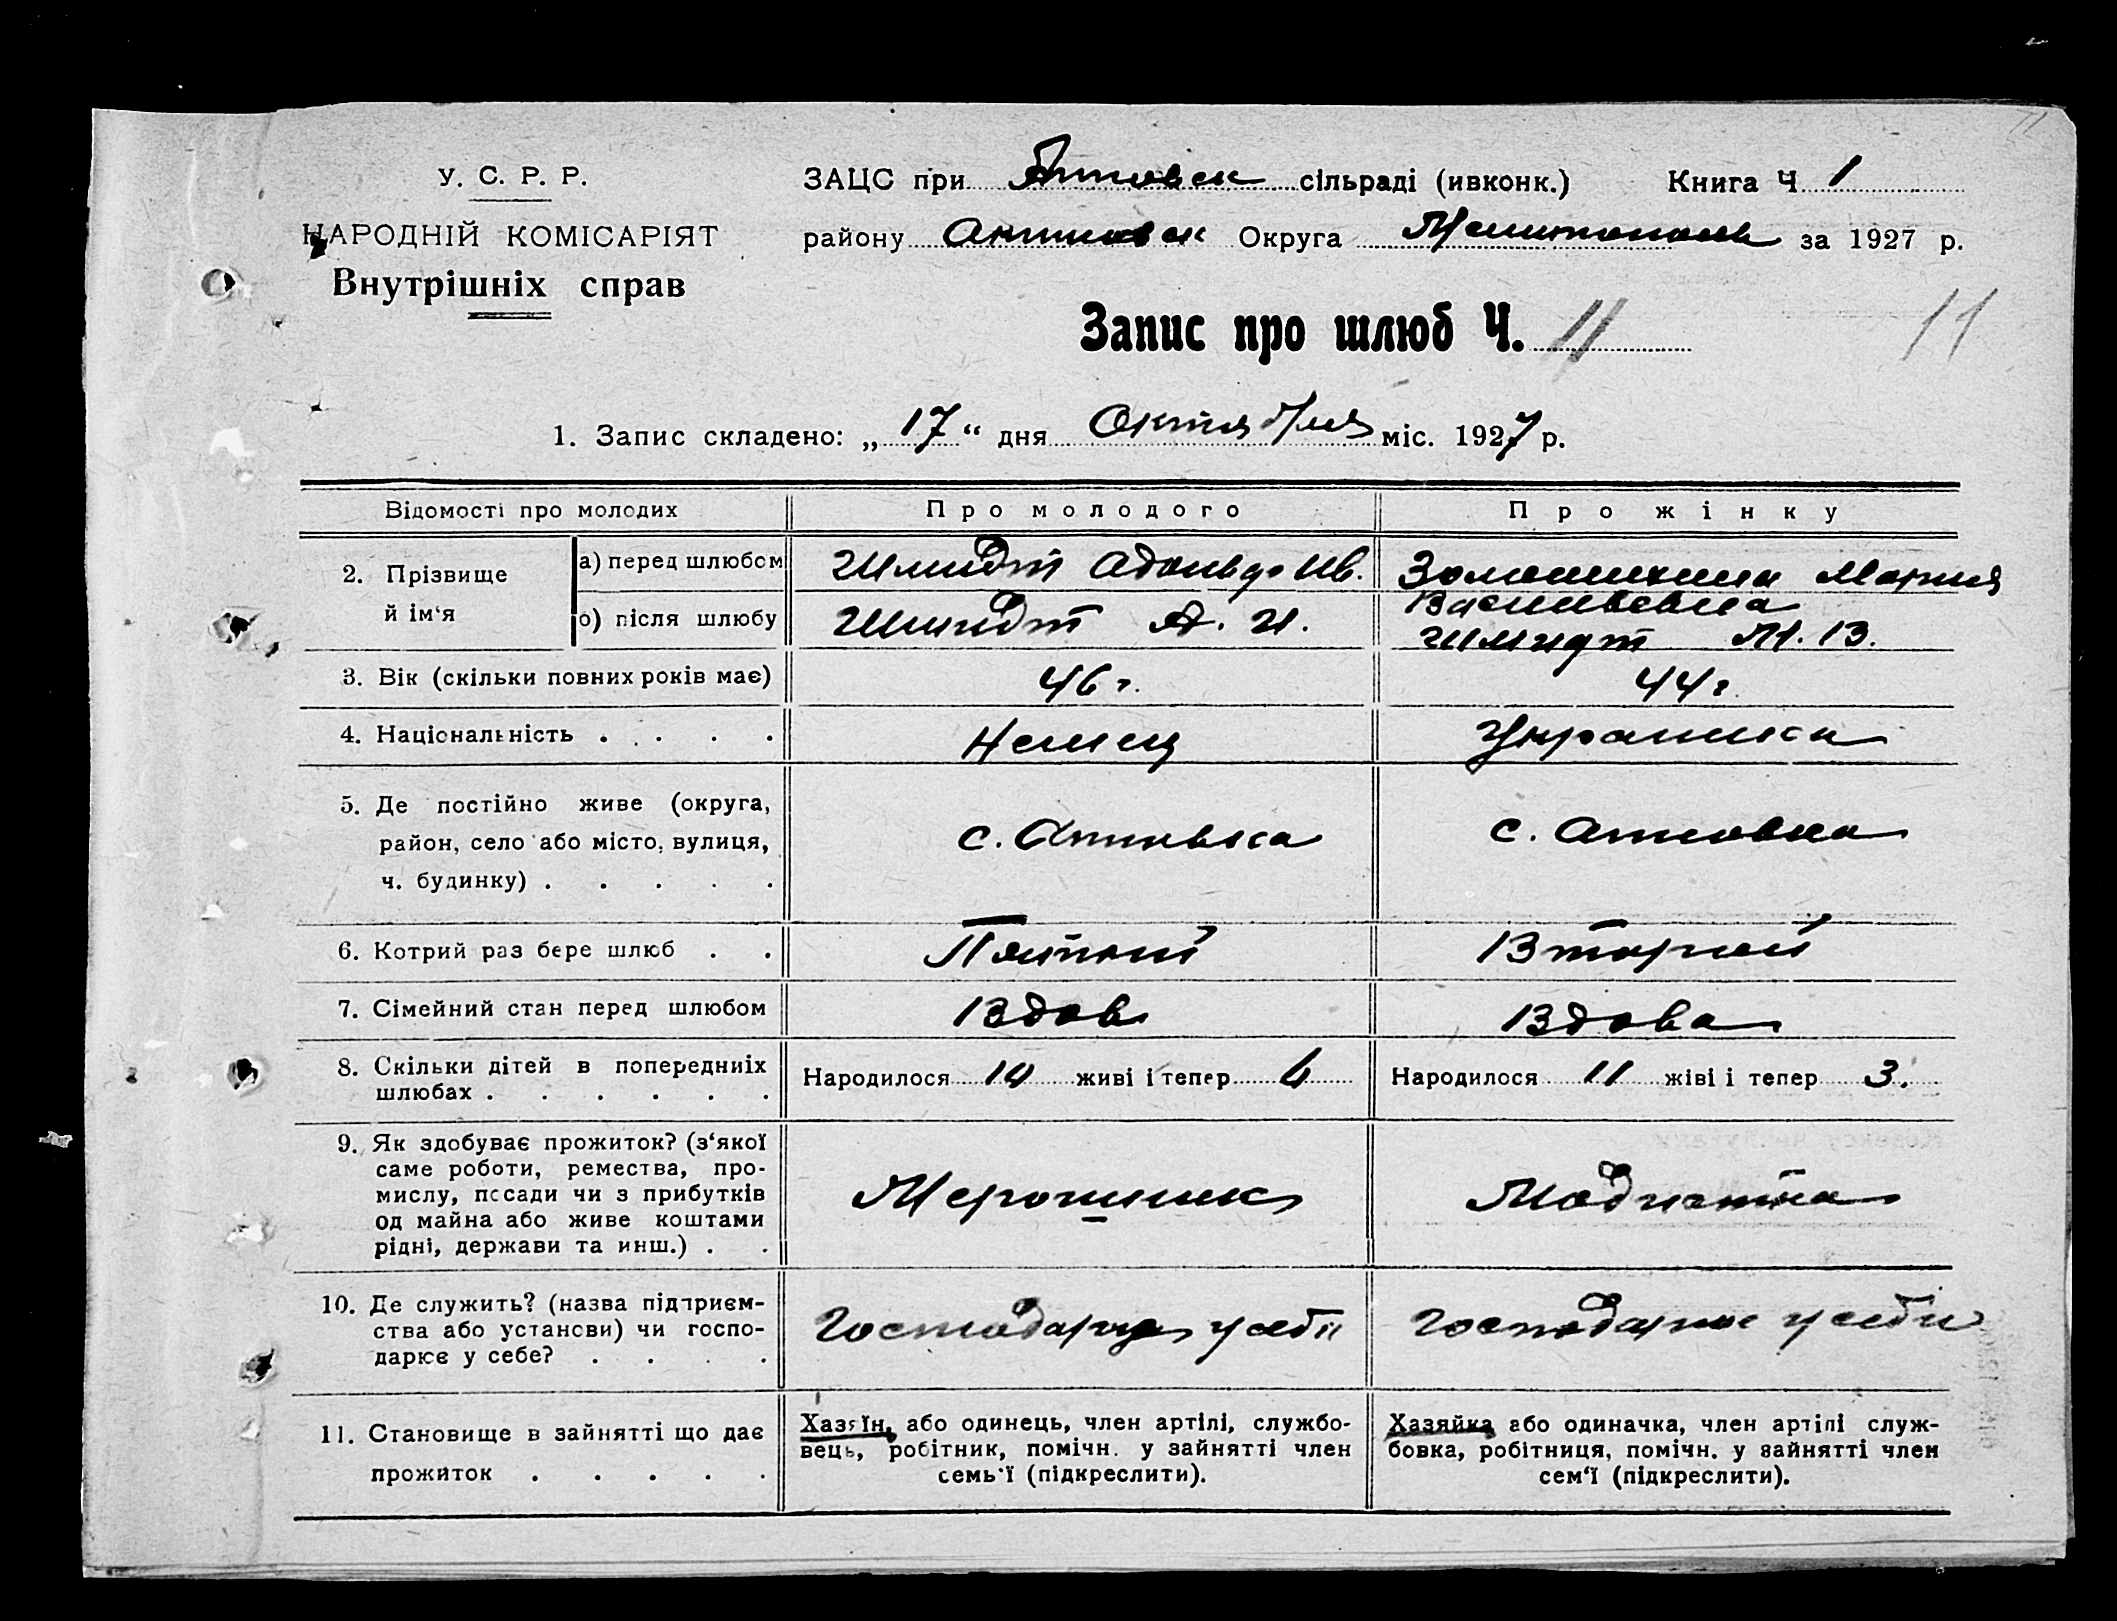 У. С. Р. Р.
НАРОДНІЙ КОМІСАРІЯТ
Внутрішніх справ
ЗАЦС при сільраді (ивконк.) Книга Ч 1
району Округа за 1927 р.
Запис про шлюб Ч. 11
11
1. Запис складено: „17“ дня Октября міс. 1927 р.
Відомості про молодих Про молодого Про жінку
2. Прізвище й ім‘я
а) перед шлюбом Шмидт Адольф Ив. Мария
Васильевна
о) після шлюбу Шмидт А. И. Шмидт М. В.
3. Вік (скільки повних років має) 46 г. 44 г.
4. Національність . . . . Немец Украинка
5. Де постійно живе (округа,
район, село або місто, вулиця,
ч. будинку) . . . . . с. с.
6. Котрий раз бере шлюб . . Пятый Второй
7. Сімейний стан перед шлюбом Вдов Вдова
8. Скільки дітей в попередниіх
шлюбах . . . . . . Народилося 14 живі і тепер Народилося 11 жіві і тепер 3.
9. Як здобуває прожиток? (з‘якої
саме роботи, ремества, про-
мислу, посади чи з прибутків
од майна або живе коштами
рідні, держави та инш.) . . Модистка
10. Де служить? (назва підприєм-
ства або установи) чи госпо-
дарює у себе? . . . .
11. Становище в зайнятті що дає
прожиток . . . . .
Хазяїн, або одинець, член артілі, службо-
вець, робітник, помічн. у зайнятті член
семь‘ї (підкреслити).
Хазяйка або одиначка, член артілі служ-
бовка, робітниця, помічн. у зайнятті член
сем‘ї (підкреслити).